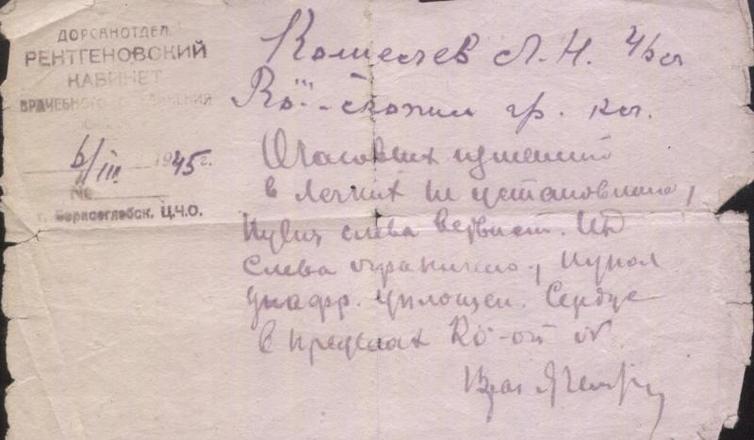 ДОРСАНОТДЕЛ
РЕНТГЕНОВСКИЙ
КАБИНЕТ
ВРАЧЕБНОГО
6/III 1945 г.
№
г. Борисоглебск. Ц.Ч.О.
Л. Н.
Rö -скопия гр. кл.
Очаговых изменений
в легких не установлено,
слева
слева ограничено, купол
диафр. уплощен. Сердце
в пределах Rö-ой N.
Врач